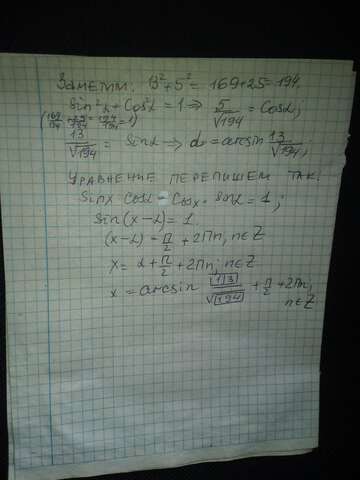 Заметим: 13²+5² = 169+25 = 194.
sin²α + cos²α = 1 ⇒ 5/√194 = cosα;
(169/194 + 25/194 = 194/194 = 1)
13/√194 = sinα ⇒ α = arcsin 13/√194;
Уравнение перепишем так:
sinx cosα - cosx · sinα = 1;
sin(x-α) = 1
(x-α) = П/2 + 2Пn, n∈Z
x = α + П/2 + 2Пn; n∈Z
x = arcsin 13/√194 + П/2 + 2Пn,
n∈Z